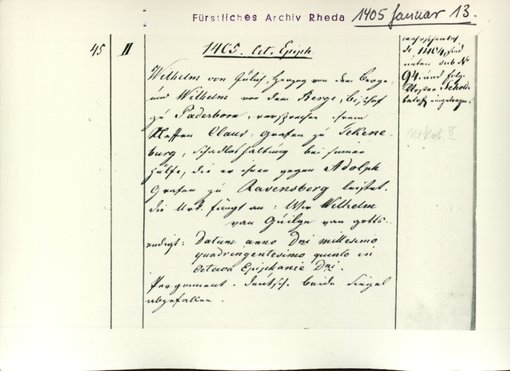 Fürstliches Archiv Rheda 1405 Januar 13.
45 II
1405. Oct. Epiph
Wilhelm von Gülch, Herzog von dem Berge
und Wilhelm von dem Berge, Bischof
zu Paderborn, versprechen ihrem
Neffen Claus, Grafen zu Tekene-
burg, Schadloshaltung bei seiner
Hülfe, die er ihnen gegen Adolph
Grafen zu Ravensberg leistet.
die Urk. fängt an: Wir Wilhelm
van Guilge van gotts
endigt: Datum anno Dni millesimo
quadringentesimo quinto in
octava Epiphanie Dni.
Pergament. deutsch. beide Siegel
abgefallen.
de 1404, sind
unten sub N
94. und folg.
Kloster
eingetragen.